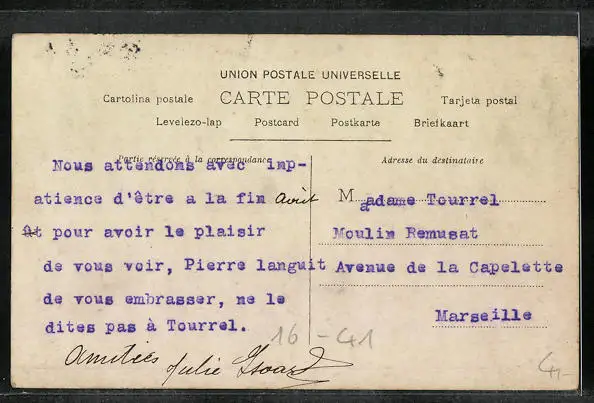 UNION POSTALE UNIVERSELLE
Cartolina postale CARTE POSTALE Tarjeta postal
Levelezo-lap Postcard Postkarte Briefkaart
Partie réservée à la correspondance
Adresse du destinataire
Nous attendons avec imp-
atience d'être a la fin août
ût pour avoir le plaisir
de vous voir, Pierre languit
de vous embrasser, ne le
dites pas à Tourrel.
Amitiés Julie Isoard
Madame Tourrel
Moulin Remusat
Avenue de la Capelette
Marseille
16-41
4,-